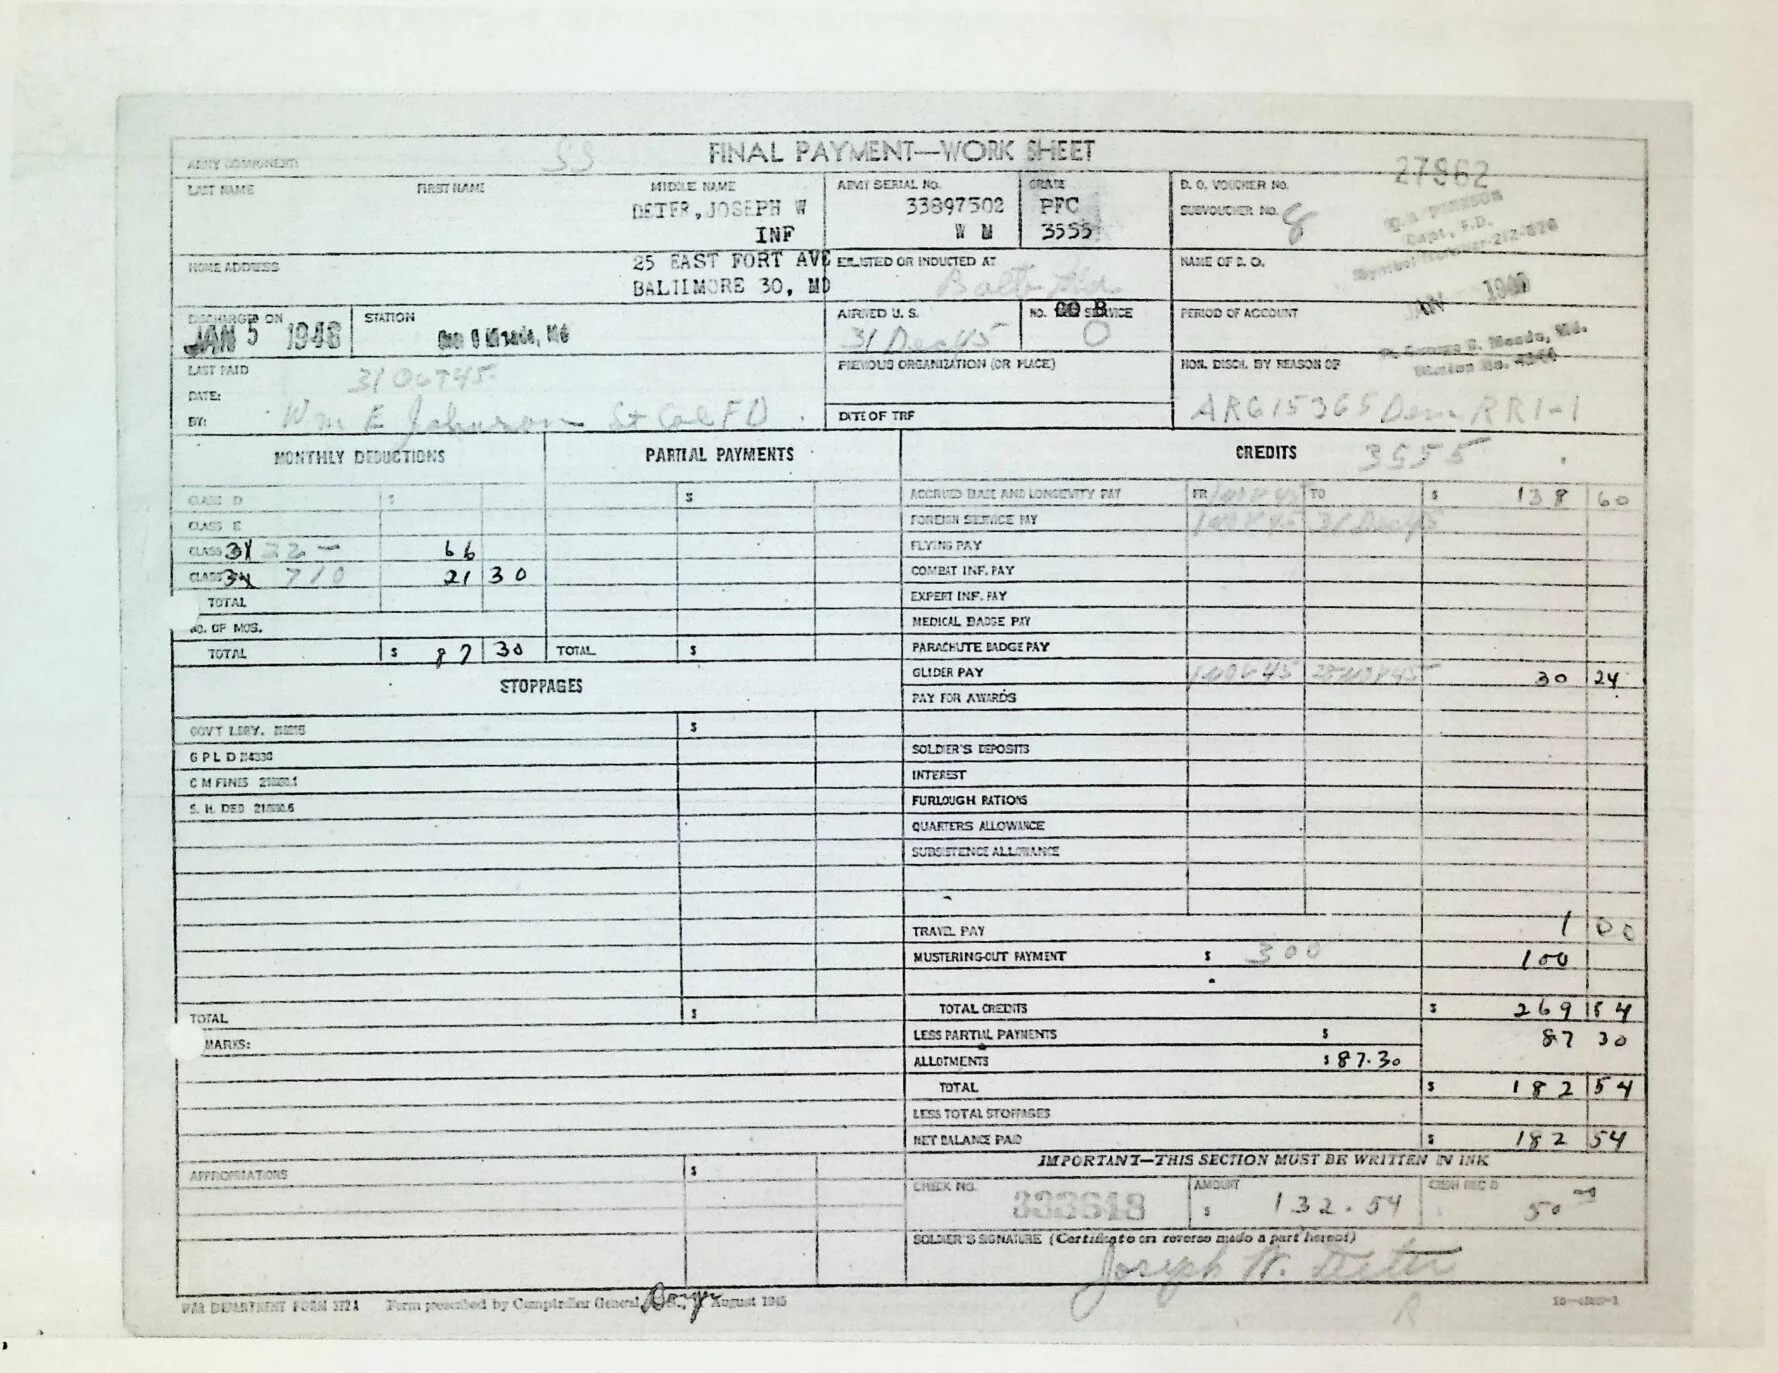 FINAL PAYMENT—WORK SHEET
ARMY COMPONENT:
53
27862
LAST NAME FIRST NAME MIDDLE NAME
DETER, JOSEPH W
INF
ARMY SERIAL NO.
33897502
W M
GRADE
PFC
3555
D. O. VOUCHER NO.
SUBVOUCHER NO. 8
Dept., F.D.
HOME ADDRESS
25 EAST FORT AVE
BALTIMORE 30, MD
ENLISTED OR INDUCTED AT
Balto Md
NAME OF D. O.
DISCHARGED ON
JAN 5 1946
STATION
Geo G Meade, Md
ARRIVED U. S.
31 Dec 45
NO. SERVICE
CO B
0
PERIOD OF ACCOUNT
JAN 1946
Ft. George G. Meade, Md.
LAST PAID
DATE:
BY: Wm E Johnson Lt Col FD
PREVIOUS ORGANIZATION (OR PLACE)
DATE OF TRF
HON. DISCH. BY REASON OF
AR615365 Dem RR1-1
MONTHLY DEDUCTIONS
CLASS D $
CLASS E
CLASS 22 — 66
CLASS 710 21 30
TOTAL
NO. OF MOS.
TOTAL $ 87 30
PARTIAL PAYMENTS
$
TOTAL $
STOPPAGES
GOV'T LDRY. $
G P L D
C M FINES
S. H. DED
TOTAL $
MARKS:
APPROPRIATIONS $
CREDITS 3555
ACCRUED BASE AND LONGEVITY PAY FR TO $ 138 60
FOREIGN SERVICE PAY 31 Dec 45
FLYING PAY
COMBAT INF. PAY
EXPERT INF. PAY
MEDICAL BADGE PAY
PARACHUTE BADGE PAY
GLIDER PAY 30 24
PAY FOR AWARDS
SOLDIER'S DEPOSITS
INTEREST
FURLOUGH RATIONS
QUARTERS ALLOWANCE
SUBSISTENCE ALLOWANCE
TRAVEL PAY 1 00
MUSTERING-OUT PAYMENT $ 300 100
TOTAL CREDITS $ 269 84
LESS PARTIAL PAYMENTS $ 87 30
ALLOTMENTS $ 87.30
TOTAL $ 182 54
LESS TOTAL STOPPAGES
NET BALANCE PAID $ 182 54
IMPORTANT—THIS SECTION MUST BE WRITTEN IN INK
CHECK NO.
AMOUNT
$ 132.54
CASH REC'D
50
SOLDIER'S SIGNATURE (Certificate on reverse made a part hereof)
Joseph W. Deter
WAR DEPARTMENT FORM 372A Form prescribed by Comptroller General August 1945